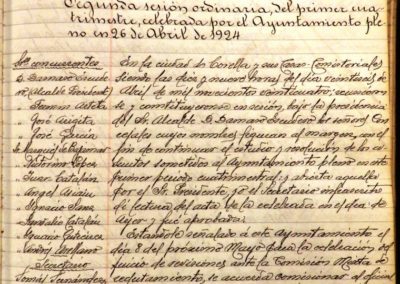 Segunda sesión ordinaria, del primer cua-
trimestre, celebrada por el Ayuntamiento ple-
no en 26 de Abril de 1924
Sres concurrentes
D. Damaso Escude-
ro (Alcalde Presidente)
Fermin Arteta
José Arigita
José García
Victorino López
Juan Catalán
Angel
Ignacio Sanz
Gonzalo Catalán
Mariano Gutierrez
Arellano
Secretario
Tomás Fernández
En la ciudad de Corella y sus Casas Consistoriales
siendo las diez y nueve horas del día veintiseis de
Abril de mil novecientos veinticuatro; reunieron-
se y constituyeron en sesión, bajo la presidencia
del Sr. Alcalde D. Damaso Escudero los señores Con-
cejales cuyos nombres figuran al margen, con el
fin de continuar el estudio y resolución de los a-
suntos sometidos al Ayuntamiento pleno en este
primer periodo cuatrimestral; y abierta aquella
por el Sr. Presidente, yo el Secretario infrascrito
dí lectura del acta de la celebrada en el día de
Ayer y fué aprobada.
Estando señalado á este Ayuntamiento el
día 8 del próximo Mayo para la celebración del
juicio de revisiones ante la Comisión Mixta de
reclutamiento, se acuerda comisionar al oficial